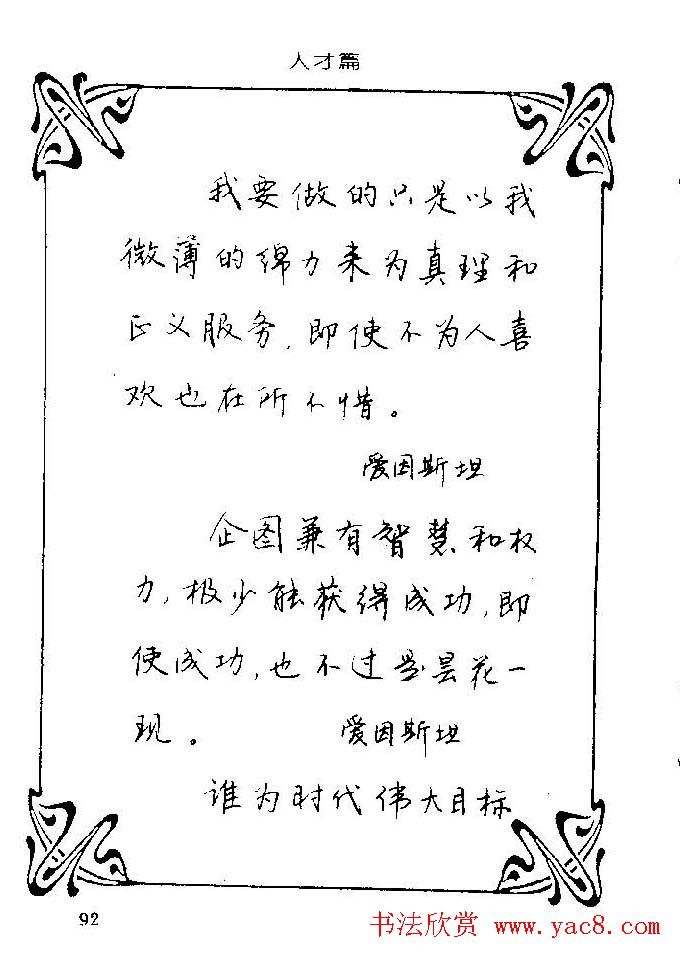 人才篇
我要做的只是以我
微薄的绵力来为真理和
正义服务,即使不为人喜
欢也在所不惜。
爱因斯坦
企图兼有智慧和权
力,极少能获得成功,即
使成功,也不过是昙花一
现。 爱因斯坦
谁为时代伟大目标
92
书法欣赏 www.yac8.com